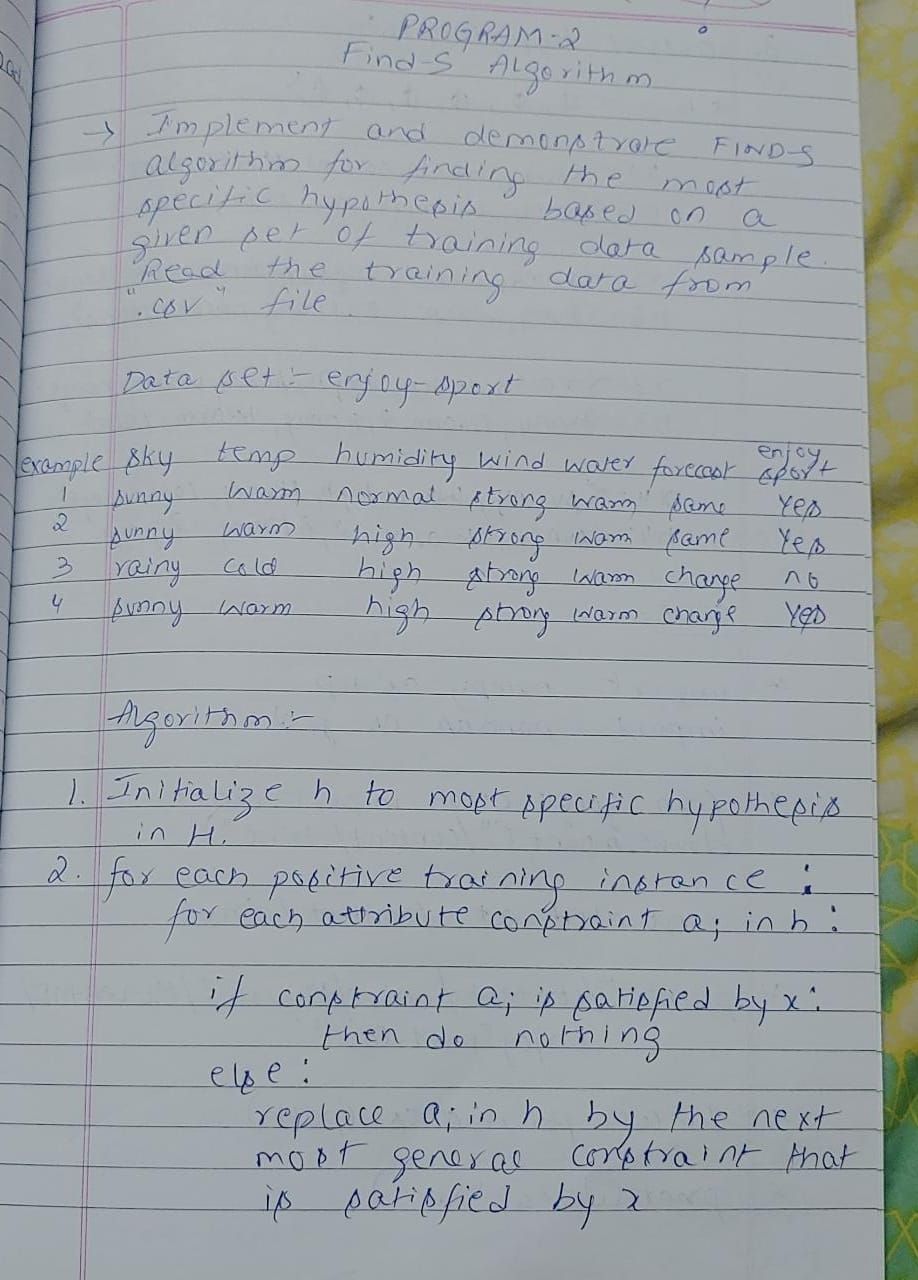 PROGRAM-2
Find-S Algorithm
→ Implement and demonstrate FIND-S
algorithm for finding the most
specific hypothesis based on a
given set of training data sample.
Read the training data from
".csv" file
Data set :- enjoy-sport
example sky temp humidity wind water forecast enjoy sport
1 sunny warm normal strong warm same Yes
2 sunny warm high strong warm same Yes
3 rainy cold high strong warm change no
4 sunny warm high strong warm change Yes
Algorithm :-
1. Initialize h to most specific hypothesis
in H.
2. for each positive training instance :
for each attribute constraint ai in h :
if constraint ai is satisfied by x :
then do nothing
else :
replace ai in h by the next
most general constraint that
is satisfied by x